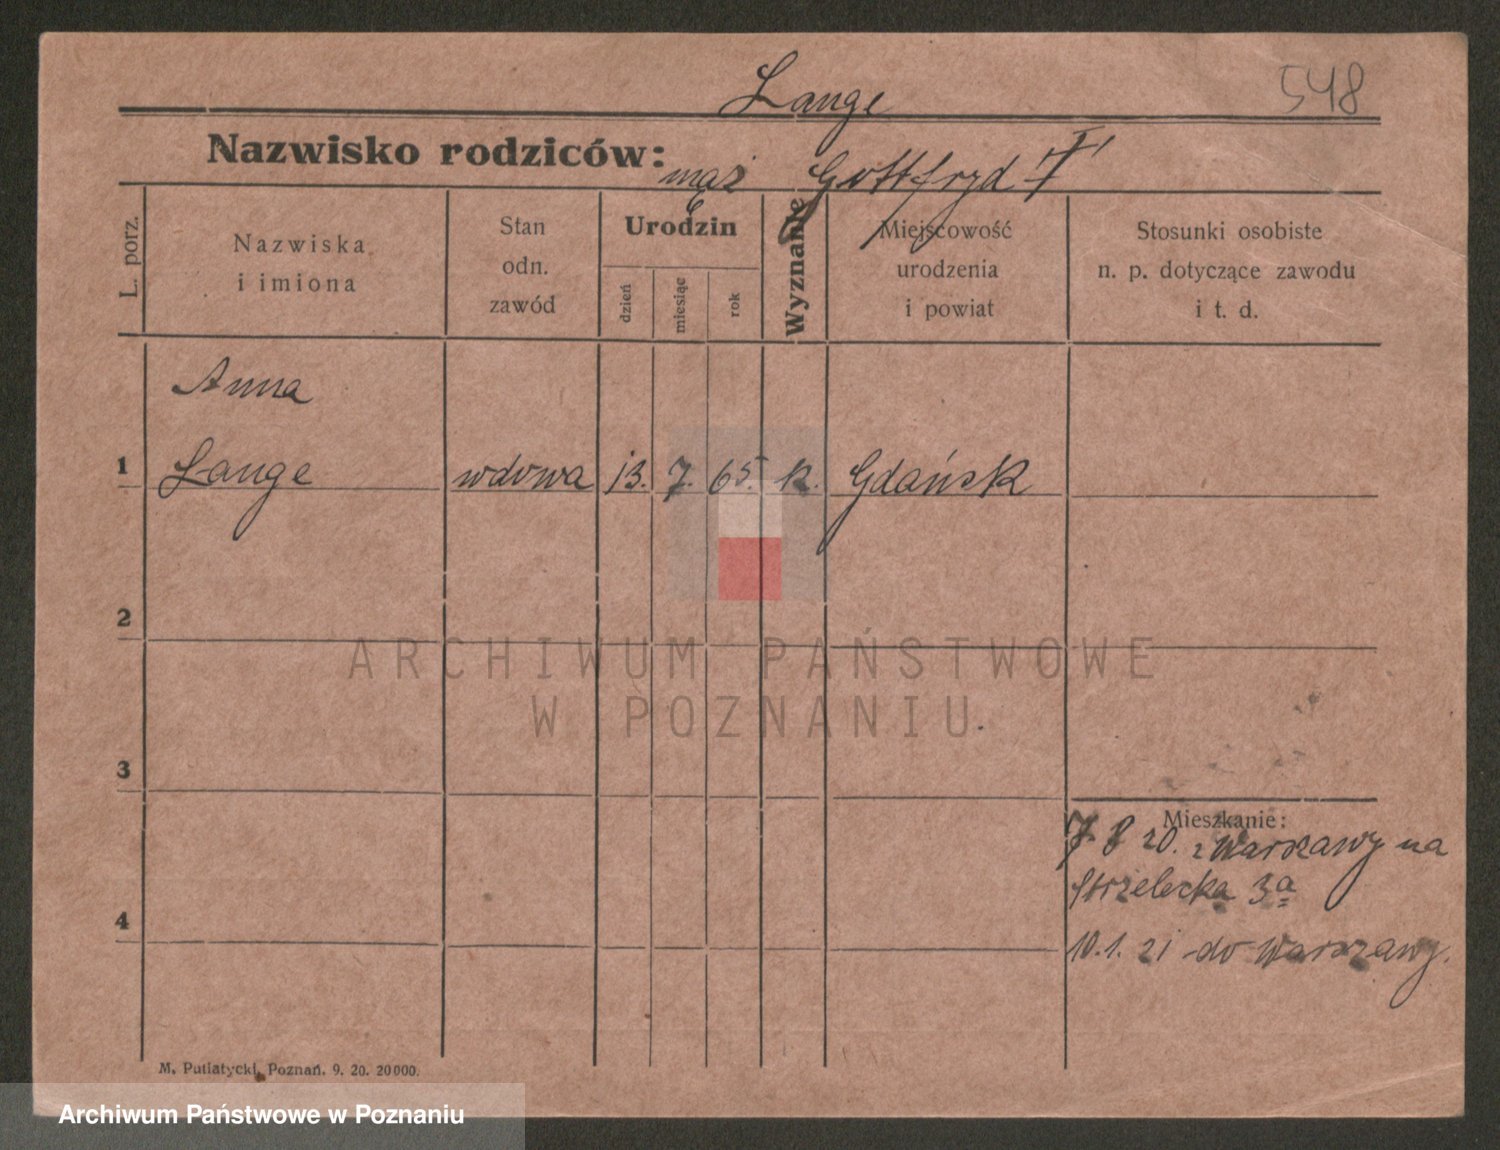 Lange
548
Nazwisko rodziców:
mąż Gottfryd "†"
L. porz.
Nazwiska
i imiona
Stan
odn.
zawód
Urodzin
dzień
miesiąc
rok
Wyznanie
Miejscowość
urodzenia
i powiat
Stosunki osobiste
n. p. dotyczące zawodu
i t. d.
Anna
1 Lange wdowa 13. 7. 65. k. Gdańsk
2
3
4
Mieszkanie:
7. 8 20. z Warszawy na
Strzelecka 3a
10.1.21 do Warszawy.
M. Putiatycki, Poznań. 9. 20. 20000.
ARCHIWUM PAŃSTWOWE
W POZNANIU
Archiwum Państwowe w Poznaniu